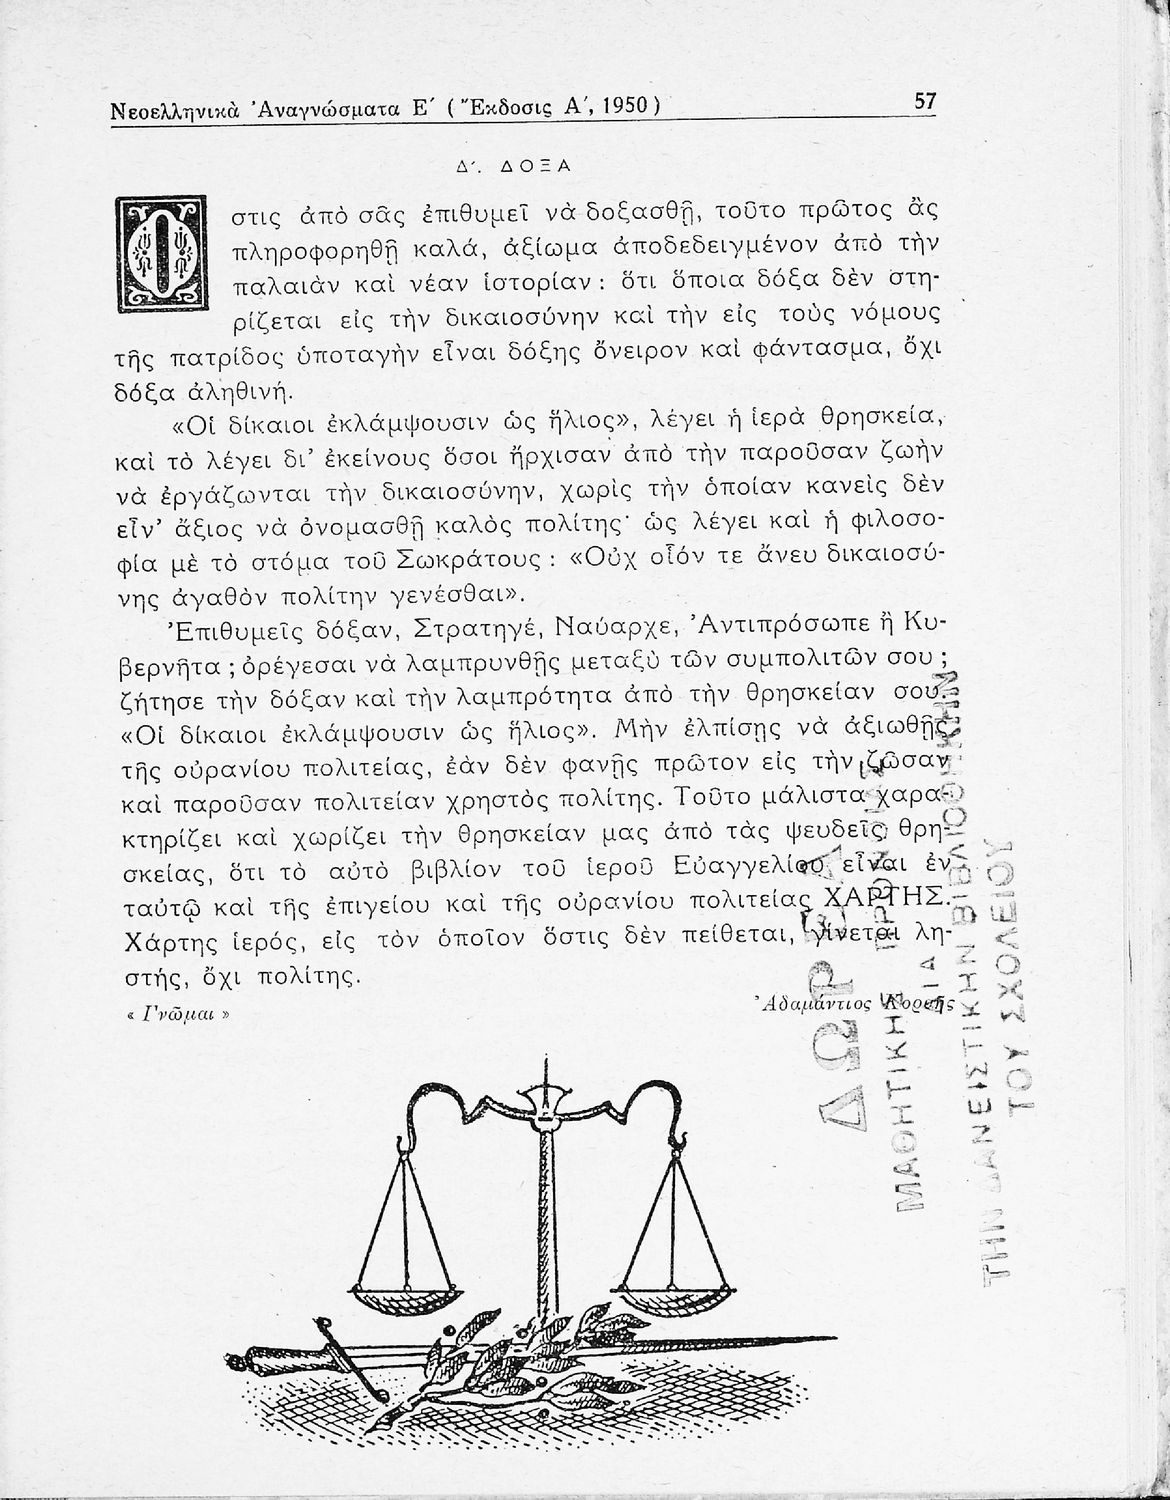 Νεοελληνικὰ Ἀναγνώσματα Ε΄ (Ἔκδοσις Α΄, 1950) 57
Δ΄. ΔΟΞΑ
Οστις ἀπὸ σᾶς ἐπιθυμεῖ νὰ δοξασθῇ, τοῦτο πρῶτος ἂς
πληροφορηθῇ καλά, ἀξίωμα ἀποδεδειγμένον ἀπὸ τὴν
παλαιὰν καὶ νέαν ἱστορίαν : ὅτι ὅποια δόξα δὲν στη-
ρίζεται εἰς τὴν δικαιοσύνην καὶ τὴν εἰς τοὺς νόμους
τῆς πατρίδος ὑποταγὴν εἶναι δόξης ὄνειρον καὶ φάντασμα, ὄχι
δόξα ἀληθινή.
«Οἱ δίκαιοι ἐκλάμψουσιν ὡς ἥλιος», λέγει ἡ ἱερὰ θρησκεία,
καὶ τὸ λέγει δι' ἐκείνους ὅσοι ἤρχισαν ἀπὸ τὴν παροῦσαν ζωὴν
νὰ ἐργάζωνται τὴν δικαιοσύνην, χωρὶς τὴν ὁποίαν κανεὶς δὲν
εἶν' ἄξιος νὰ ὀνομασθῇ καλὸς πολίτης· ὡς λέγει καὶ ἡ φιλοσο-
φία μὲ τὸ στόμα τοῦ Σωκράτους : «Οὐχ οἷόν τε ἄνευ δικαιοσύ-
νης ἀγαθὸν πολίτην γενέσθαι».
Ἐπιθυμεῖς δόξαν, Στρατηγέ, Ναύαρχε, Ἀντιπρόσωπε ἢ Κυ-
βερνῆτα ; ὀρέγεσαι νὰ λαμπρυνθῇς μεταξὺ τῶν συμπολιτῶν σου ;
ζήτησε τὴν δόξαν καὶ τὴν λαμπρότητα ἀπὸ τὴν θρησκείαν σου.
«Οἱ δίκαιοι ἐκλάμψουσιν ὡς ἥλιος». Μὴν ἐλπίσῃς νὰ ἀξιωθῇς
τῆς οὐρανίου πολιτείας, ἐὰν δὲν φανῇς πρῶτον εἰς τὴν ζῶσαν
καὶ παροῦσαν πολιτείαν χρηστὸς πολίτης. Τοῦτο μάλιστα χαρα-
κτηρίζει καὶ χωρίζει τὴν θρησκείαν μας ἀπὸ τὰς ψευδεῖς θρη-
σκείας, ὅτι τὸ αὐτὸ βιβλίον τοῦ ἱεροῦ Εὐαγγελίου εἶναι ἐν
ταὐτῷ καὶ τῆς ἐπιγείου καὶ τῆς οὐρανίου πολιτείας ΧΑΡΤΗΣ.
Χάρτης ἱερός, εἰς τὸν ὁποῖον ὅστις δὲν πείθεται, γίνεται λη-
στής, ὄχι πολίτης.
« Γνῶμαι » Ἀδαμάντιος Κοραῆς
ΔΩΡΕΑ
ΜΑΘΗΤΙΚΗΣ ΠΡΟΝΟΙΑΣ
ΔΙΑ
ΤΗΝ ΔΑΝΕΙΣΤΙΚΗΝ ΒΙΒΛΙΟΘΗΚΗΝ
ΤΟΥ ΣΧΟΛΕΙΟΥ